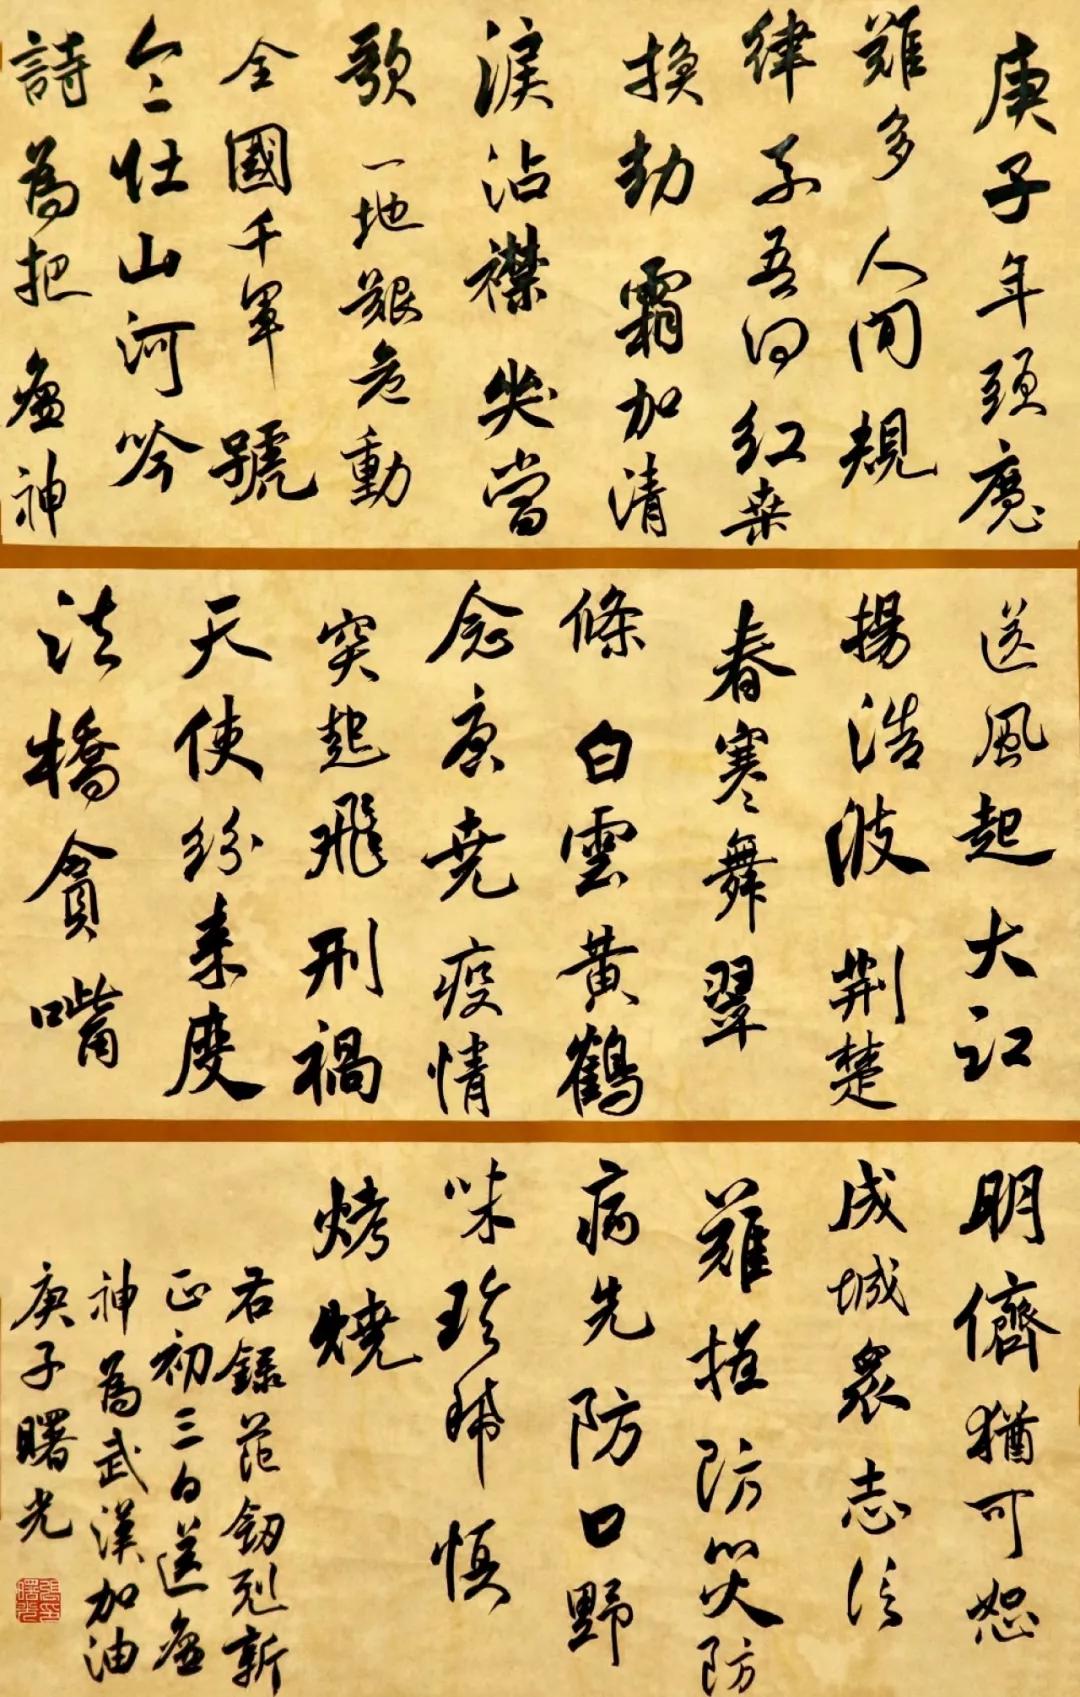 庚子年頭魔
難多人間規
律奈吾何红桑
換劫霜加清
淚沾襟哭當
歌一地艱危動
全國千軍號
令壯山河吟
詩為把瘟神
送風起大江
揚浩波荆楚
春寒舞翠
條白雲黄鶴
念唐堯疫情
突起飛刑禍
天使紛来度
法橋貪嘴
明儕猶可恕
成城衆志信
難摧防火防
病先防口野
味珍稀慎
烤燒
右録范新
正初三日送瘟
神為武漢加油
庚子曙光